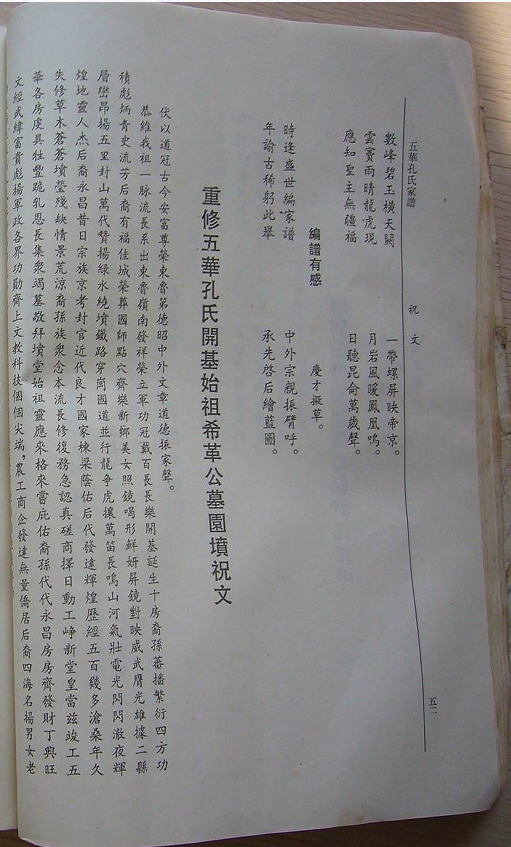 五華孔氏家譜
祝文
五二
數峰碧玉橫天闕 一帶螺屏映帝京。
雲竇雨晴龍虎現 月岩風暖鳳凰鳴。
應知聖主無疆福 日聽昆侖萬歲聲。
編譜有感 慶才擬草。
時逢盛世編家譜 中外宗親振臂呼。
年諭古稀躬此舉 承先啓后繪藍圖。
重修五華孔氏開基始祖希革公墓園墳祝文
伏以道冠古今安富尊榮東魯第德昭中外文章道德振家聲。
恭維我祖一脉流長系出東魯嶺南發祥榮立軍功冠戴百長長樂開基誕生十房裔孫蕃播繁衍四方功
積彪炳青史流芳后裔有福佳城榮葬國師點穴齊樂新鄉美女照鏡喝形鮮妍屏鏡對映威武膺光雄據二縣
層巒昂揚五里封山萬代贊揚綠水繞墳鐵路穿崗國道並行龍争虎攘萬笛長鳴山河氣壯電光閃閃澈夜輝
煌地靈人杰后裔永昌昔日宗族京考封官近代良才國家棟梁蔭佑后代發達輝煌歷經五百幾多滄桑年久
失修草木蒼蒼墳瑩殘缺情景荒凉裔孫族衆念本流長修復務急認真磋商擇日動工崢新堂皇當兹竣工五
華各房虔具牲豐跪乳恩長集衆竭墓敬拜墳堂始祖靈應來格來當庇佑裔孫代代永昌房房齊發財丁興旺
文經武緯富貴彪揚軍政各界功勛齊上文教科技個個尖端，農工商企發達無量僑居后裔四海名揚男女老